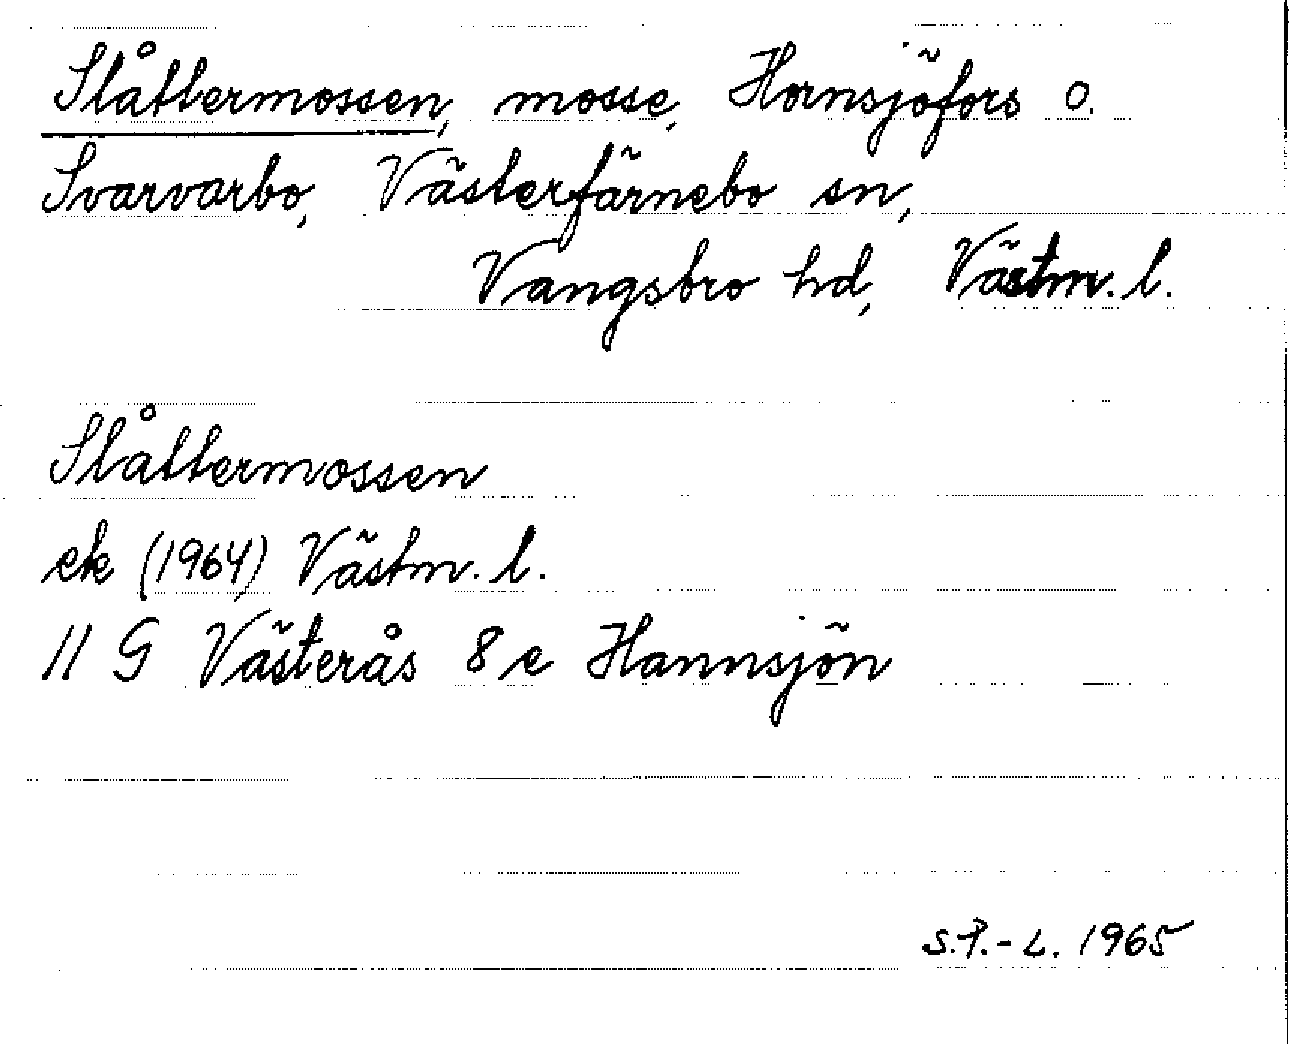 Slåttermossen, mosse, Hornsjöfors o.
Svarvarbo, Västerfärnebo sn,
Vangsbro hd, Västm. l.
Slåttermossen
ek (1964) Västm. l.
11 G Västerås 8 e Hannsjön
S.P.-L. 1965